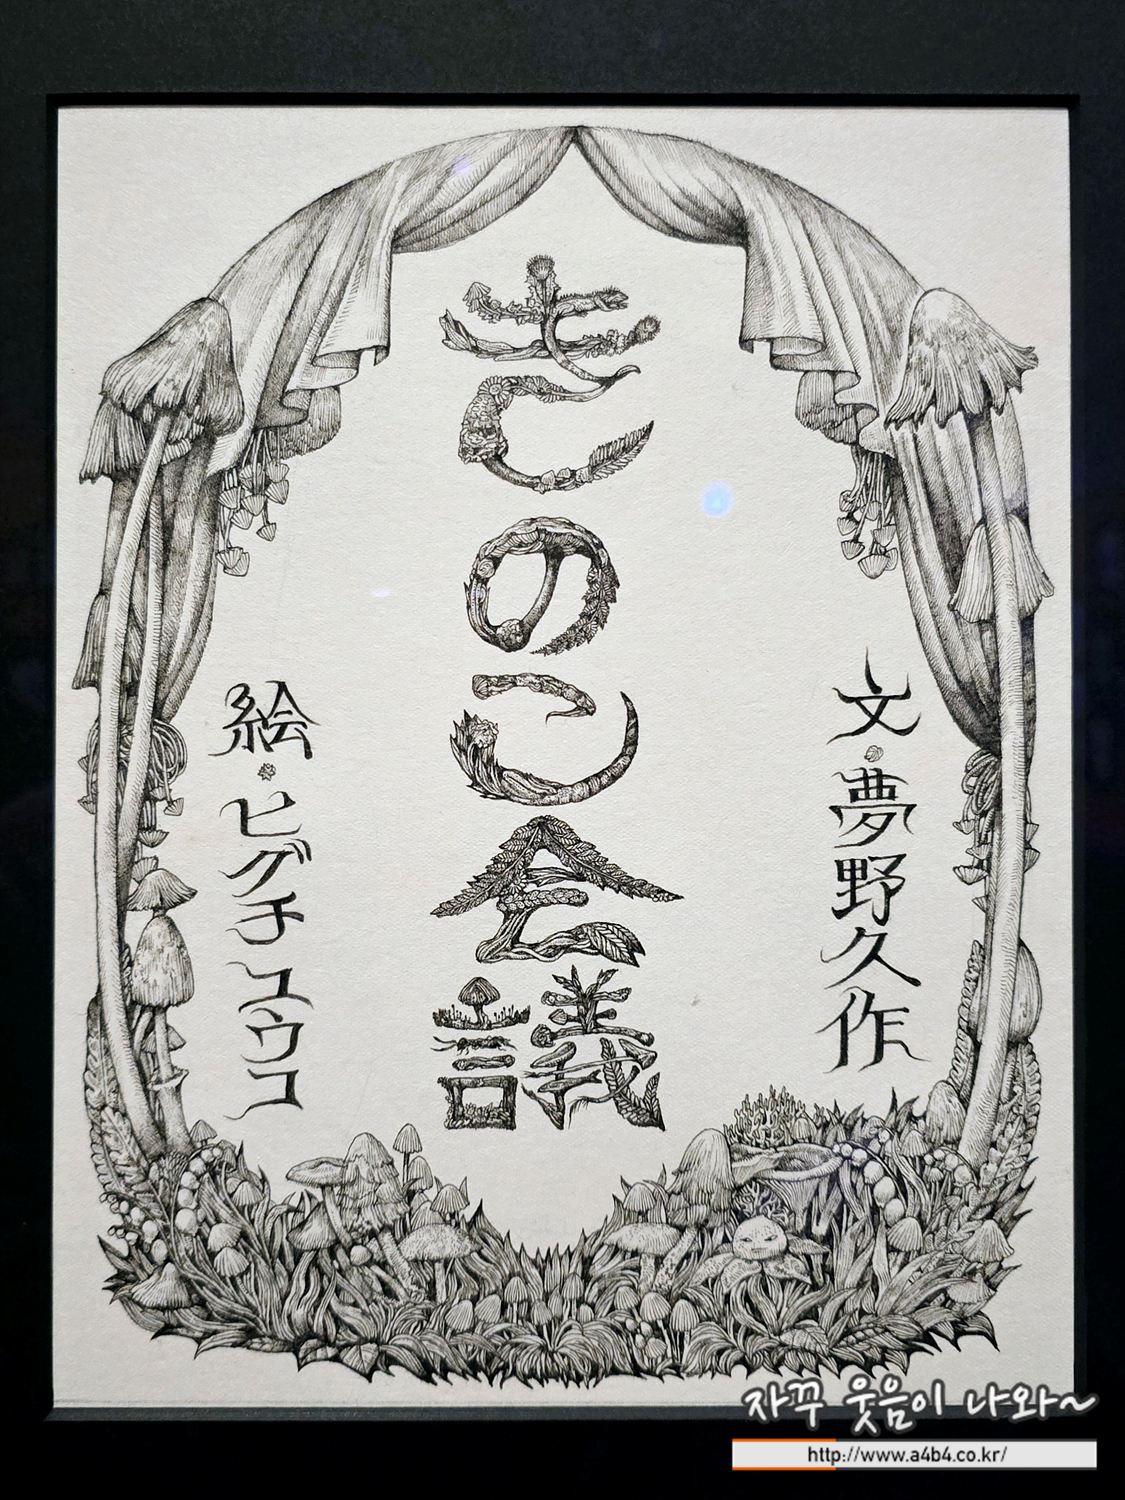 文・夢野久作
きのこ会議
絵・ヒグチユウコ
자꾸 웃음이 나와~
http://www.a4b4.co.kr/